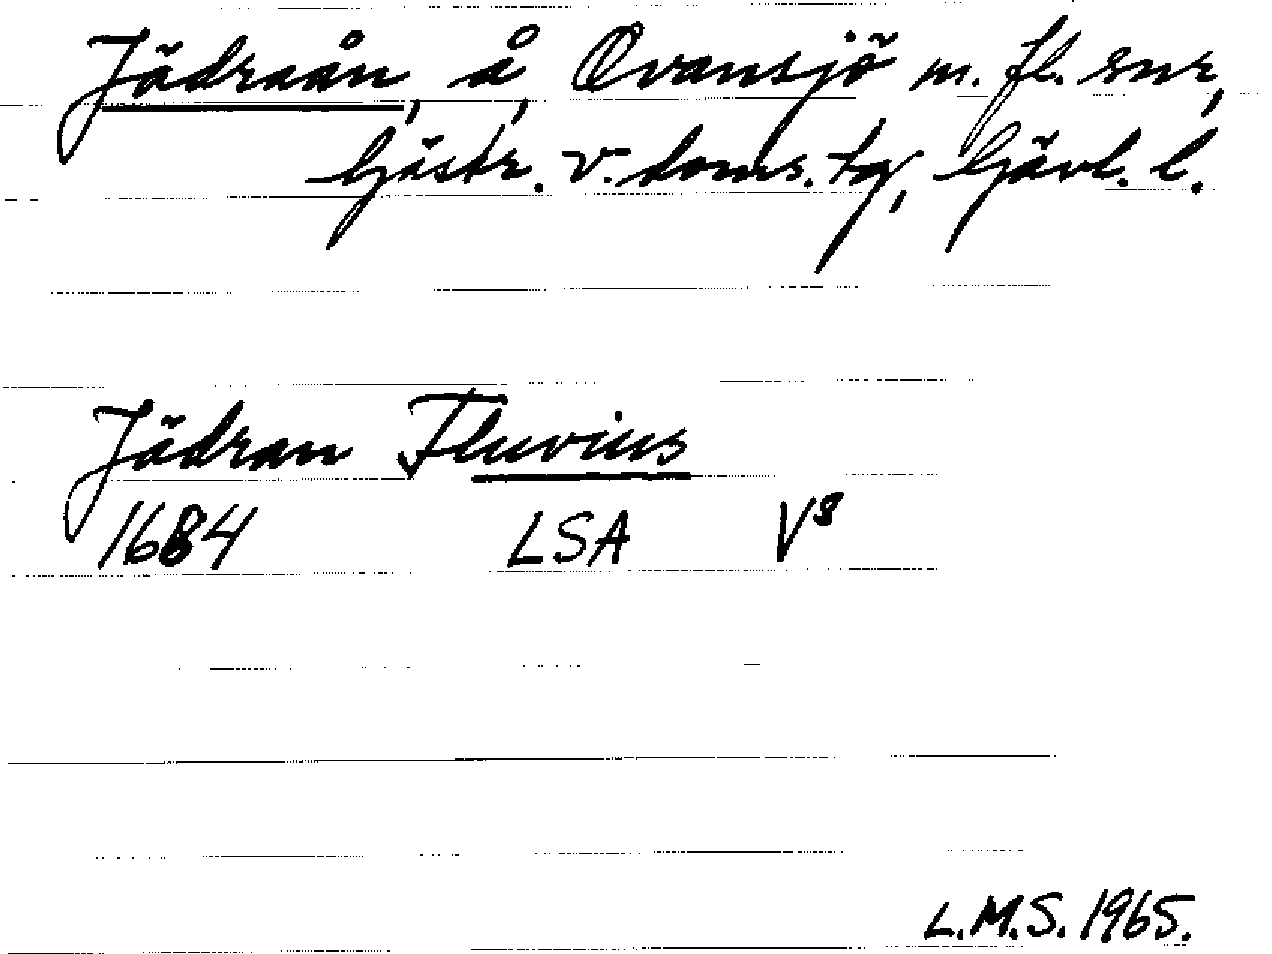 Jädraån, å, Ovansjö m. fl. snr,
Gästr. v. doms. tg, Gävl. l.
Jädran Fluvius
1684 LSA V³
L.M.S. 1965.